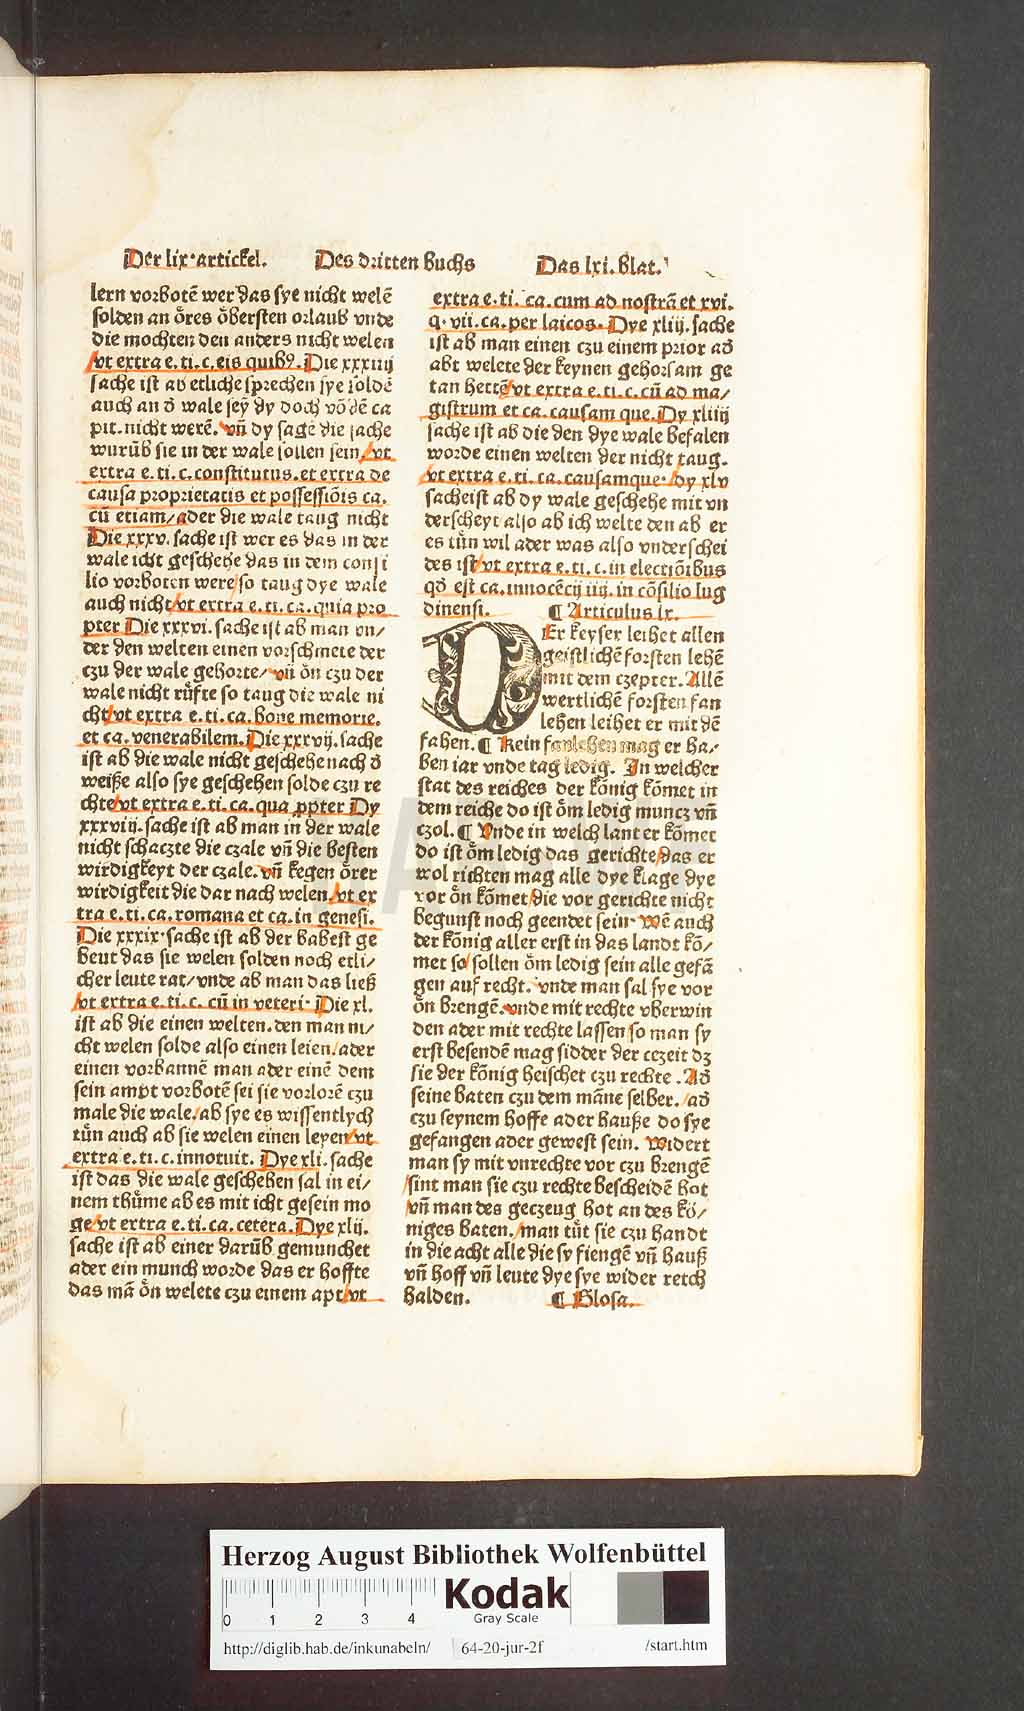 Der lix·artickel. Des dritten Buchs Das lxi. Blat.
lern vorbotē wer das sye nicht welē
solden an öres öbersten orlaub vnde
die mochten den anders nicht welen
vt extra e. ti. c. eis quibꝰ. Die xxxiiij
sache ist ab etliche sprechen sye soldē
auch an ð wale sey dy doch võ dē ca
pit. nicht werē. vñ dy sage die sache
wurūb sie in der wale sollen sein/vt
extra e. ti. c. constitutus. et extra de
causa proprietatis et possessiōis ca.
cū etiam/ader die wale taug nicht
Die xxxv. sache ist wer es das in der
wale icht geschehe das in dem consi
lio vorboten were/so taug dye wale
auch nicht/vt extra e. ti. ca. quia pro
pter Die xxxvi. sache ist ab man vn/
der den welten einen vorschmete der
czu der wale gehorte/vñ ön czu der
wale nicht rüfte so taug die wale ni
cht/vt extra e. ti. ca. bone memorie.
et ca. venerabilem. Die xxxvij. sache
ist ab die wale nicht geschehe nach ð
weiße also sye geschehen solde czu re
chte/vt extra e. ti. ca. qua ꝓpter Dy
xxxviij. sache ist ab man in der wale
nicht schaczte die czale vñ die besten
wirdigkeyt der czale. vñ kegen örer
wirdigkeit die dar nach welen/vt ex
tra e. ti. ca. romana et ca. in genesi.
Die xxxix·sache ist ab der babest ge
beut das sie welen solden noch etli/
cher leute rat/vnde ab man das ließ
/vt extra e. ti. c. cū in veteri· Die xl.
ist ab die einen welten. den man ni/
cht welen solde also einen leien/ader
einen vorbannē man ader einē dem
sein ampt vorbotē sei sie vorlorē czu
male die wale/ab sye es wissentlych
tün auch ab sie welen einen leyen/vt
extra e. ti. c. innotuit. Dye xli. sache
ist das die wale geschehen sal in ei/
nem thüme ab es mit icht gesein mo
ge/vt extra e. ti. ca. cetera. Dye xlij.
sache ist ab einer darūb gemunchet
ader ein munch worde das er hoffte
das mā ön welete czu einem apt/vt
extra e. ti. ca. cum ad nostrā et xvi.
q. vii. ca. per laicos. Dye xliij. sache
ist ab man einen czu einem prior að
abt welete der keynen gehorsam ge
tan hette/vt extra e. ti. c. cū ad ma/
gistrum et ca. causam que. Dy xliiij
sache ist ab die den dye wale befalen
worde einen welten der nicht taug.
/vt extra e. ti. ca. causamque· dy xlv
sacheist ab dy wale geschehe mit vn
derscheyt also ab ich welte den ab er
es tün wil ader was also vnderschei
des ist/vt extra e. ti. c. in electiōibus
qð est ca. innocēcij iiij. in cōsilio lug
dinensi. ¶ Articulus lx.
DEr keyser leihet allen
geistlichē forsten lehē
mit dem czepter. Allē
wertlichē forsten fan
lehen leihet er mit dē
fahen. ¶ Kein fanlehen mag er ha/
ben iar vnde tag ledig. In welcher
stat des reiches der könig kömet in
dem reiche do ist öm ledig muncz vñ
czol. ¶ Vnde in welch lant er kömet
do ist öm ledig das gerichte/das er
wol richten mag alle dye klage dye
vor ön kömet/die vor gerichte nicht
begunst noch geendet sein· Wē auch
der könig aller erst in das landt kö/
met so sollen öm ledig sein alle gefā
gen auf recht. vnde man sal sye vor
ön brengē. vnde mit rechte vberwin
den ader mit rechte lassen so man sy
erst besendē mag sidder der cezeit dz
sie der könig heischet czu rechte. Að
seine baten czu dem māne selber. /að
czu seynem hoffe ader hauße do sye
gefangen ader gewest sein. Widert
man sy mit vnrechte vor czu brengē
/sint man sie czu rechte bescheidē hot
/vñ man des geczeug hot an des kö/
niges baten. /man tüt sie czu handt
in die acht alle die sy fiengē vñ hauß
vñ hoff vñ leute dye sye wider retch
halden. ¶ Glosa.
Herzog August Bibliothek Wolfenbüttel
0 1 2 3 4
Kodak
Gray Scale
http://diglib.hab.de/inkunabeln/ 64-20-jur-2f /start.htm